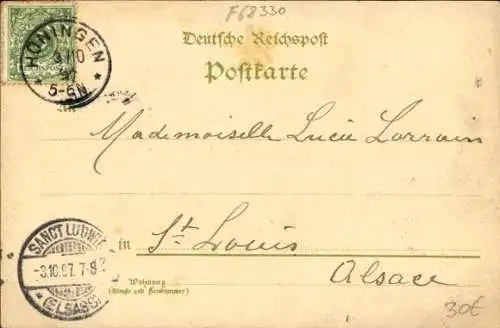 F68330
HÜNINGEN
3/10
97
5-6N
Deutsche Reichspost
Postkarte
Mademoiselle Lucie Lorrain
SANCT LUDWIG
-3.10.97. 7-8
(ELSASS)
in St Louis
Alsace
Wohnung
(Straße und Hausnummer)
30€